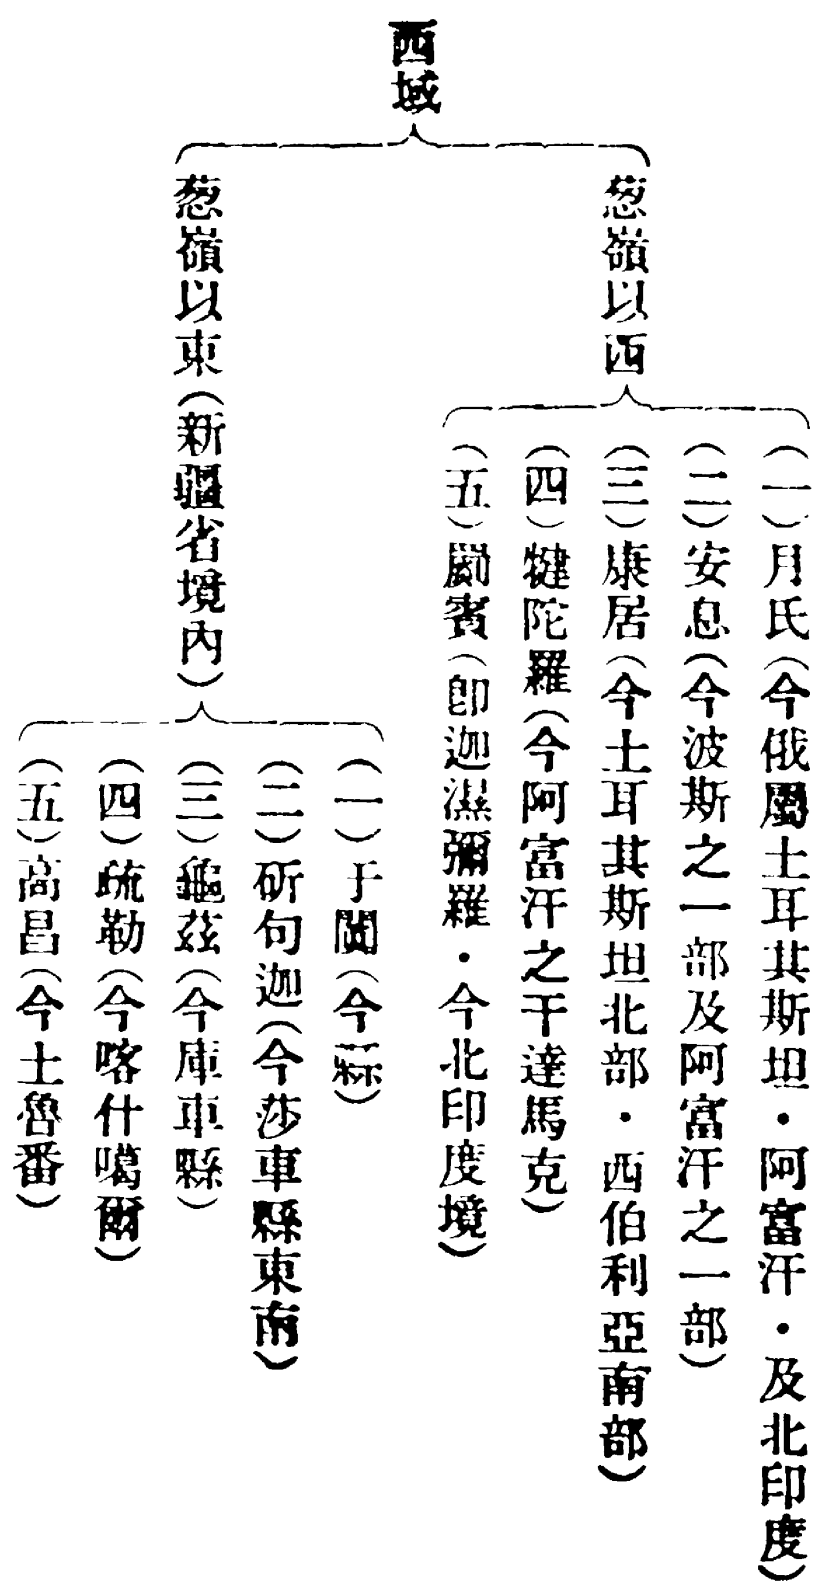 西域
葱嶺以西
(一)月氏(今俄屬土耳其斯坦·阿富汗·及北印度)
(二)安息(今波斯之一部及阿富汗之一部)
(三)康居(今土耳其斯坦北部·西伯利亞南部)
(四)犍陀羅(今阿富汗之干達馬克)
(五)罽賓(卽迦濕彌羅·今北印度境)
葱嶺以東(新疆省境內)
(一)于闐(今)
(二)斫句迦(今莎車縣東南)
(三)龜茲(今庫車縣)
(四)疏勒(今喀什噶爾)
(五)高昌(今土魯番)